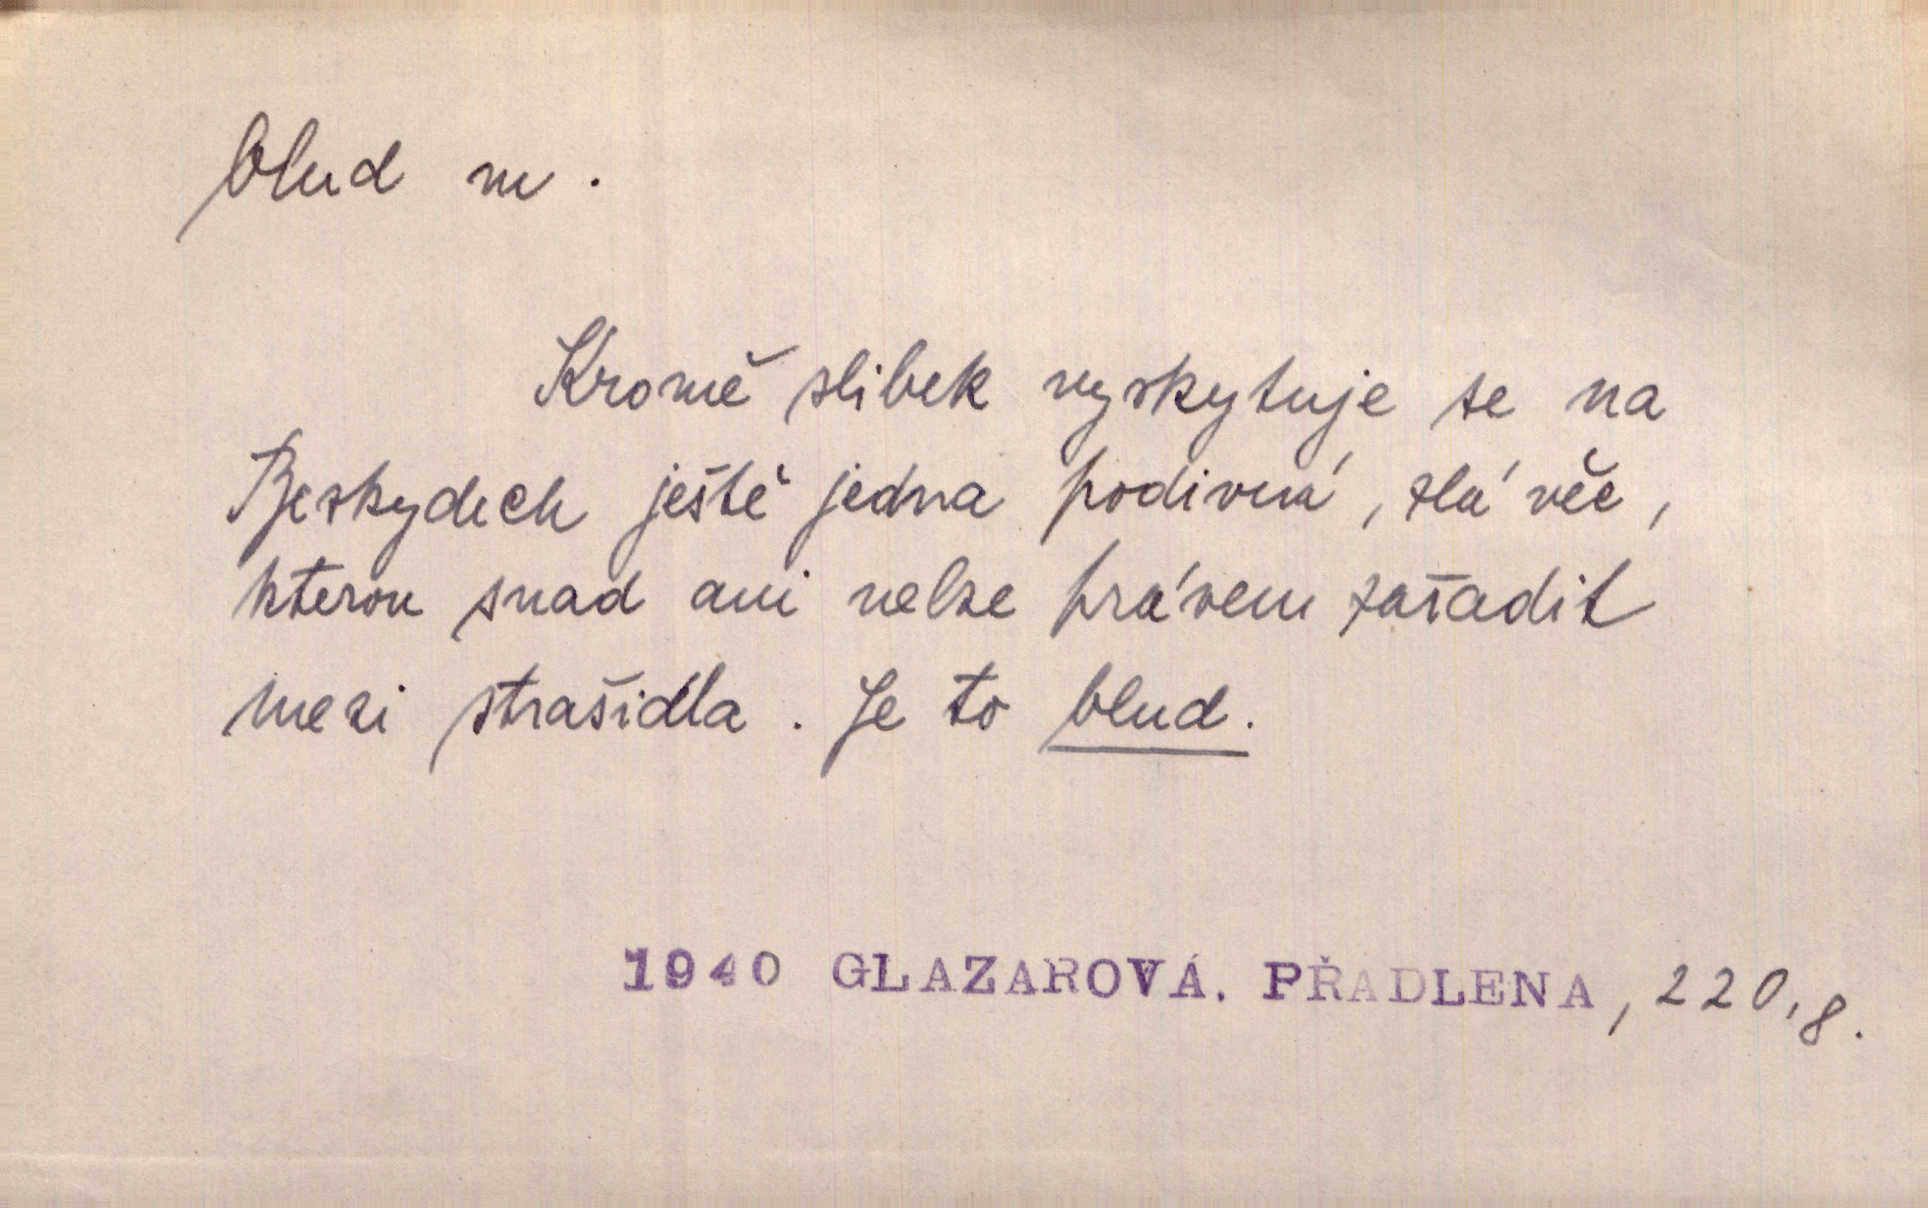 blud m.
Kromě slibek vyskytuje se na
Beskydech ještě jedna podivná, zlá věc,
kterou snad ani nelze právem zařadit
mezi strašidla. Je to blud.
1940 GLAZAROVÁ. PŘADLENA, 220,8.